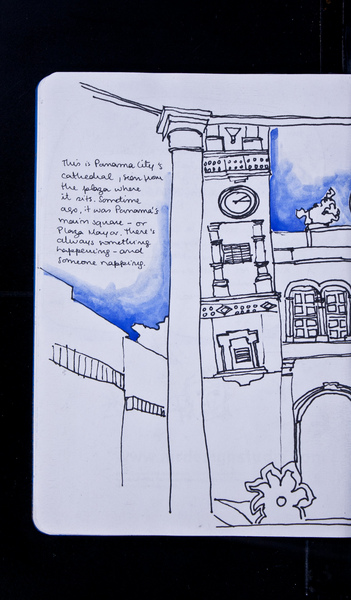 This is Panama City's
cathedral, seen from
the plaza where
it sits. Sometime
ago, it was Panama's
main square - or
Plaza Mayor. There's
always something
happening - and
someone napping.